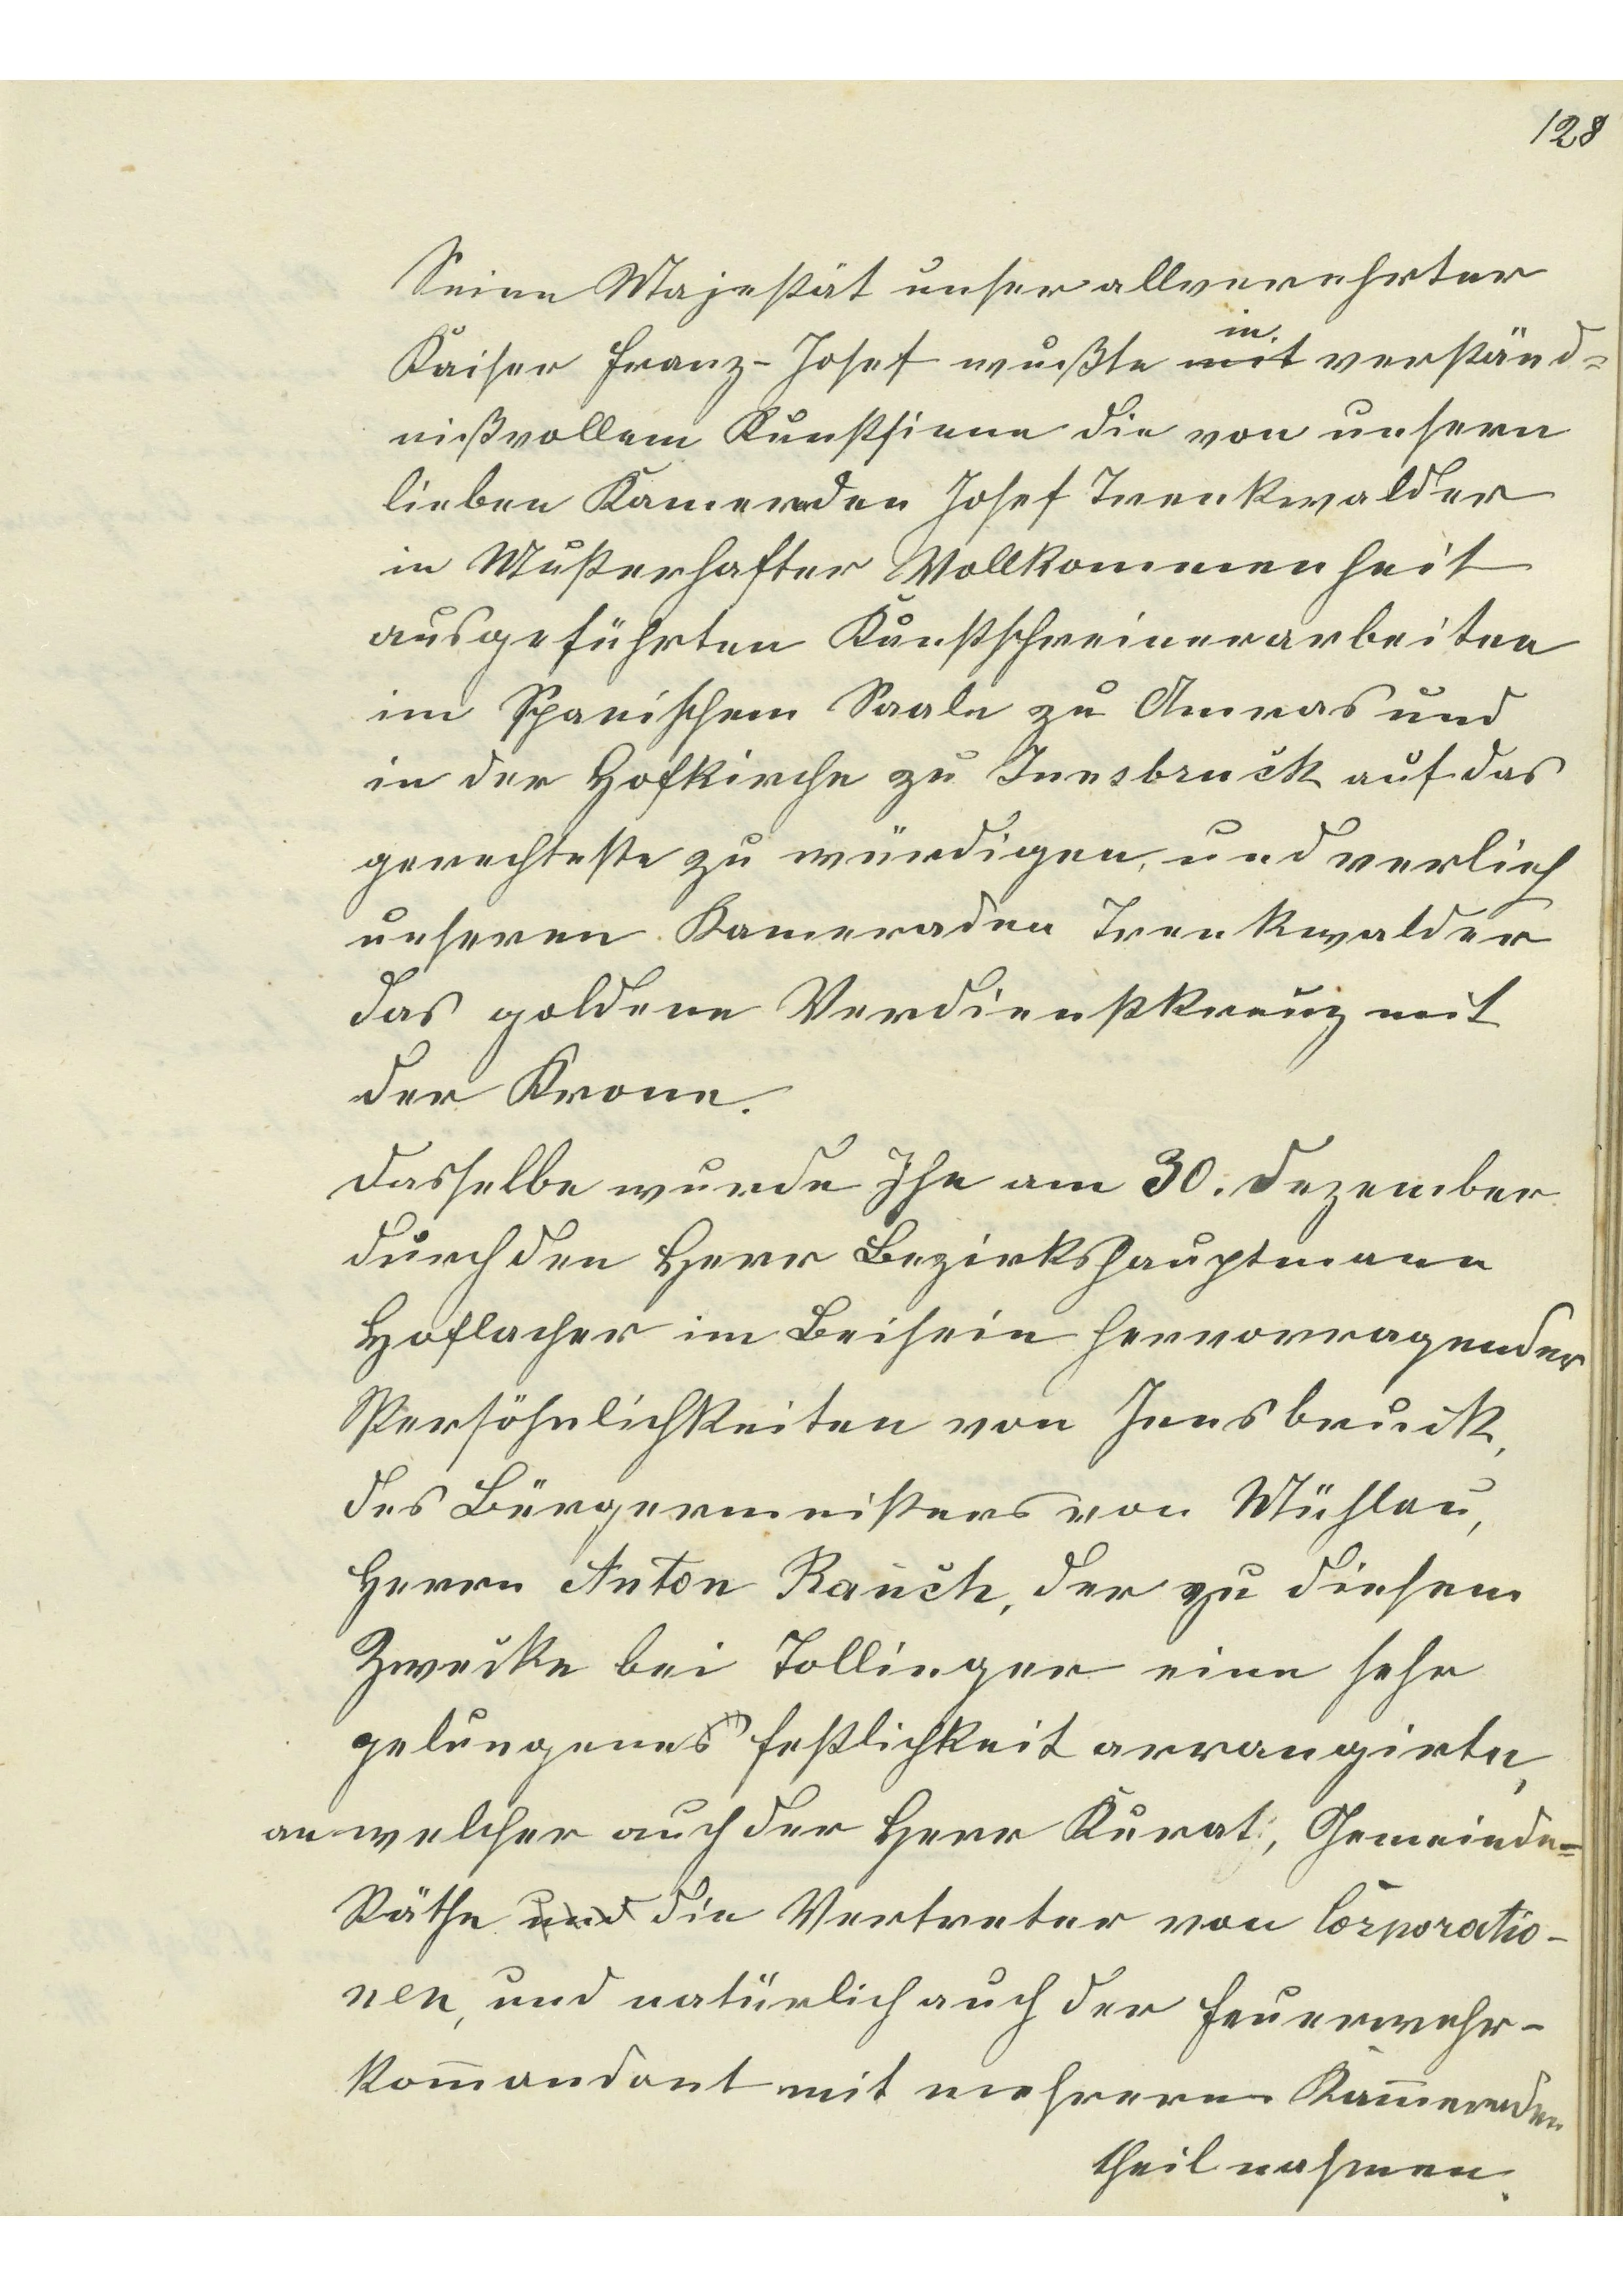 128
Seine Majestät unser allverehrter
in
Kaiser Franz-Josef wußte mit verständ=
nißvollem Kunstsinne die von unsern
lieben Kameraden Josef Trenkwalder
in Musterhafter Vollkommenheit
ausgeführten Kunstschreinerarbeiten
im Spanischem Saale zu Amras und
in der Hofkirche zu Innsbruck auf das
gerechteste zu würdigen, und verlieh
unseren Kameraden Trenkwalder
das goldene Verdienstkreuz mit
der Krone.
Dasselbe wurde Ihn am 30. Dezember
durch den Herr Bezirkshauptmann
Hoflacher im Beisein hervorragender
Persöhnlichkeiten von Innsbruck,
des Bürgermeisters von Mühlau,
Herrn Anton Rauch, der zu diesem
Zwecke bei Tollinger eine sehr
gelungenes Festlichkeit arrangirte,
an welcher auch der Herr Kurat, Gemeinde=
Räthe und die Vertreter von Corporatio-
nen, und natürlich auch der Feuerwehr-
kom̅andant mit mehreren Kam̅eraden
theil nahmen.